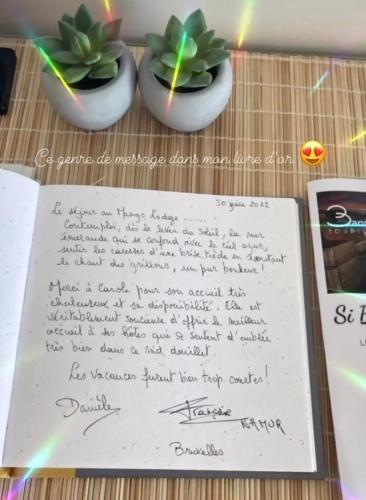 Ce genre de message dans mon livre d'or 😍
30 juin 2022
Le séjour au Mango Lodge .......
Contempler, dès le lever du Soleil, la mer
émeraude qui se confond avec le ciel azur,
sentir les caresses d'une brise tiède en écoutant
le chant des grillons, un pur bonheur !
Merci à Carole pour son accueil très
chaleureux et sa disponibilité. Elle est
véritablement soucieuse d'offrir le meilleur
accueil à ses hôtes qui se sentent d'emblée
très bien dans ce nid douillet.
Les vacances furent bien trop courtes !
Danièle
Françoise
NAMUR
Bruxelles
Si